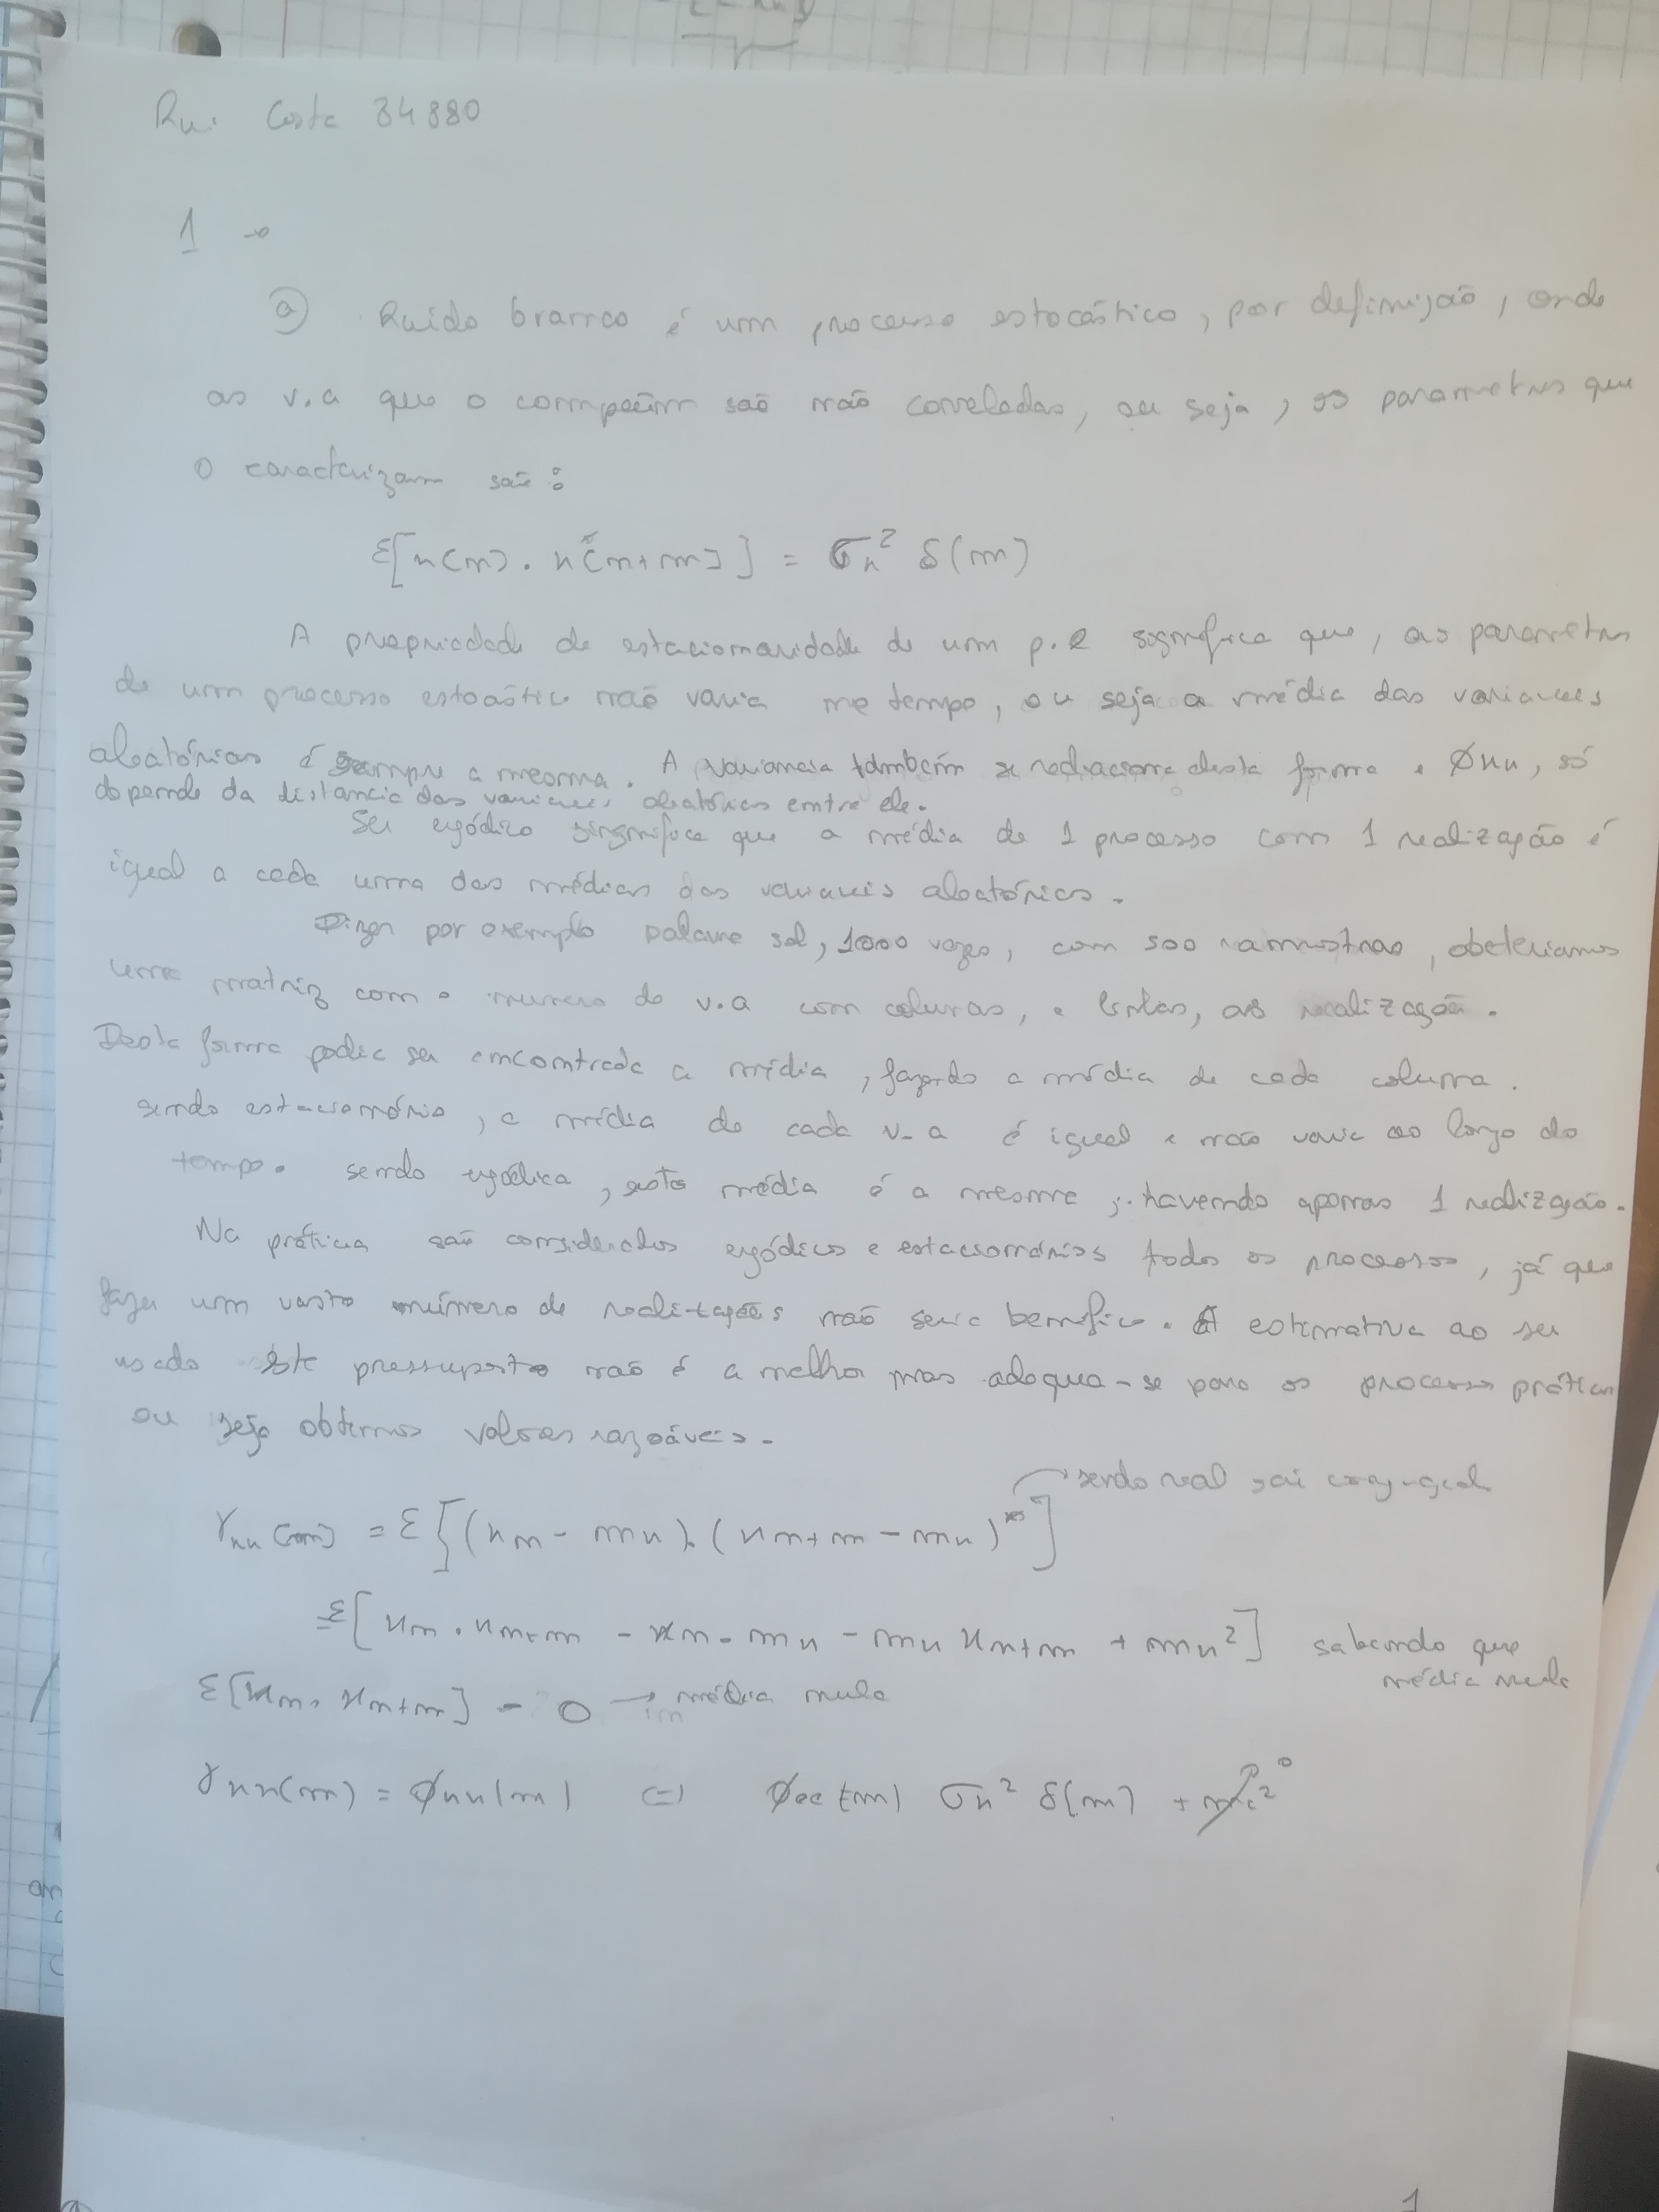 Rui Costa 84880
1 →
a) Ruído branco é um processo estocástico, por definição, onde
as v.a que o compoêm saõ não correladas, ou seja, os parametros que
o caracterizam saõ:
ε[x(n). x*(n+m)] = σx² δ(m)
A propriedade de estacionaridade de um p.e significa que, os parametros
de um processo estoástico naõ varia no tempo, ou seja a média das variaveis
aleatórias é sempre a mesma. A variancia também se relaciona desta forma e Øxx, só
depende da distancia das variaveis aleatórias entre ele.
Ser ergódico significa que a média de 1 processo com 1 realização é
igual a cada uma das médias das variaveis aleatórias.
Dizer por exemplo palavra sol, 1000 vezes, com 500 amostras, obeteriamos
uma matriz com o numero de v.a com colunas, e linhas, as realização.
Desta forma podia ser encontrada a média, fazendo a média de cada coluna.
sendo estacionário, a média de cada v.a é igual e naõ varia ao longo do
tempo. sendo ergódica, esta média é a mesma, havendo apenas 1 realização.
Na prática saõ considerados ergódicos e estacionários todos os processos, já que
fazer um vasto número de realizações naõ seria benefico. A estimativa ao ser
usado este pressuposto naõ é a melhor mas adequa-se para os processos práticos
ou seja obtemos valores razoáveis.
sendo real sai conjugado
γxx(m) = ε[(xn - mx).(xn+m - mx)*]
= ε[xn.xn+m - xn.mx - mx xn+m + mx²] sabendo que
média nula
ε[xn, xn+m] = 0 → média nula
γxx(m) = Øxx(m) (=) Øee(m) σx² δ(m) + me² 0
1